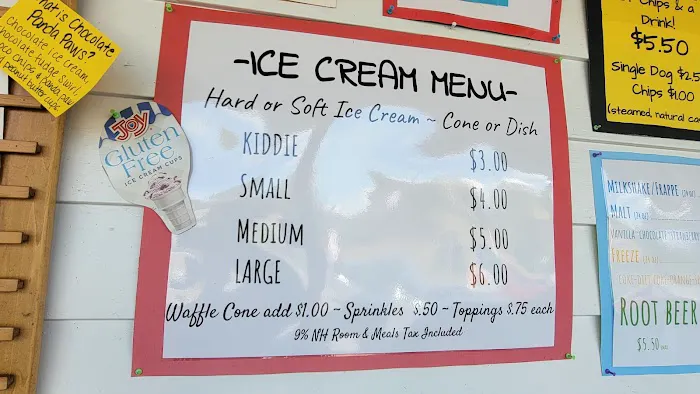 What is Chocolate
Panda Paws?
Chocolate ice cream,
chocolate fudge swirl,
choco chips & panda paw
peanut butter cups
-ICE CREAM MENU-
Hard or Soft Ice Cream ~ Cone or Dish
KIDDIE $3.00
SMALL $4.00
MEDIUM $5.00
LARGE $6.00
Waffle Cone add $1.00 ~ Sprinkles $.50 ~ Toppings $.75 each
9% NH Room & Meals Tax Included
JOY
Gluten
Free
ICE CREAM CUPS
Chips & a
Drink!
$5.50
Single Dog $2.5
Chips $1.00
(steamed, natural ca
MILKSHAKE/FRAPPE
MALT
VANILLA-CHOCOLATE-STRAWBERRY
FREEZE
ROOT BEER
$5.50